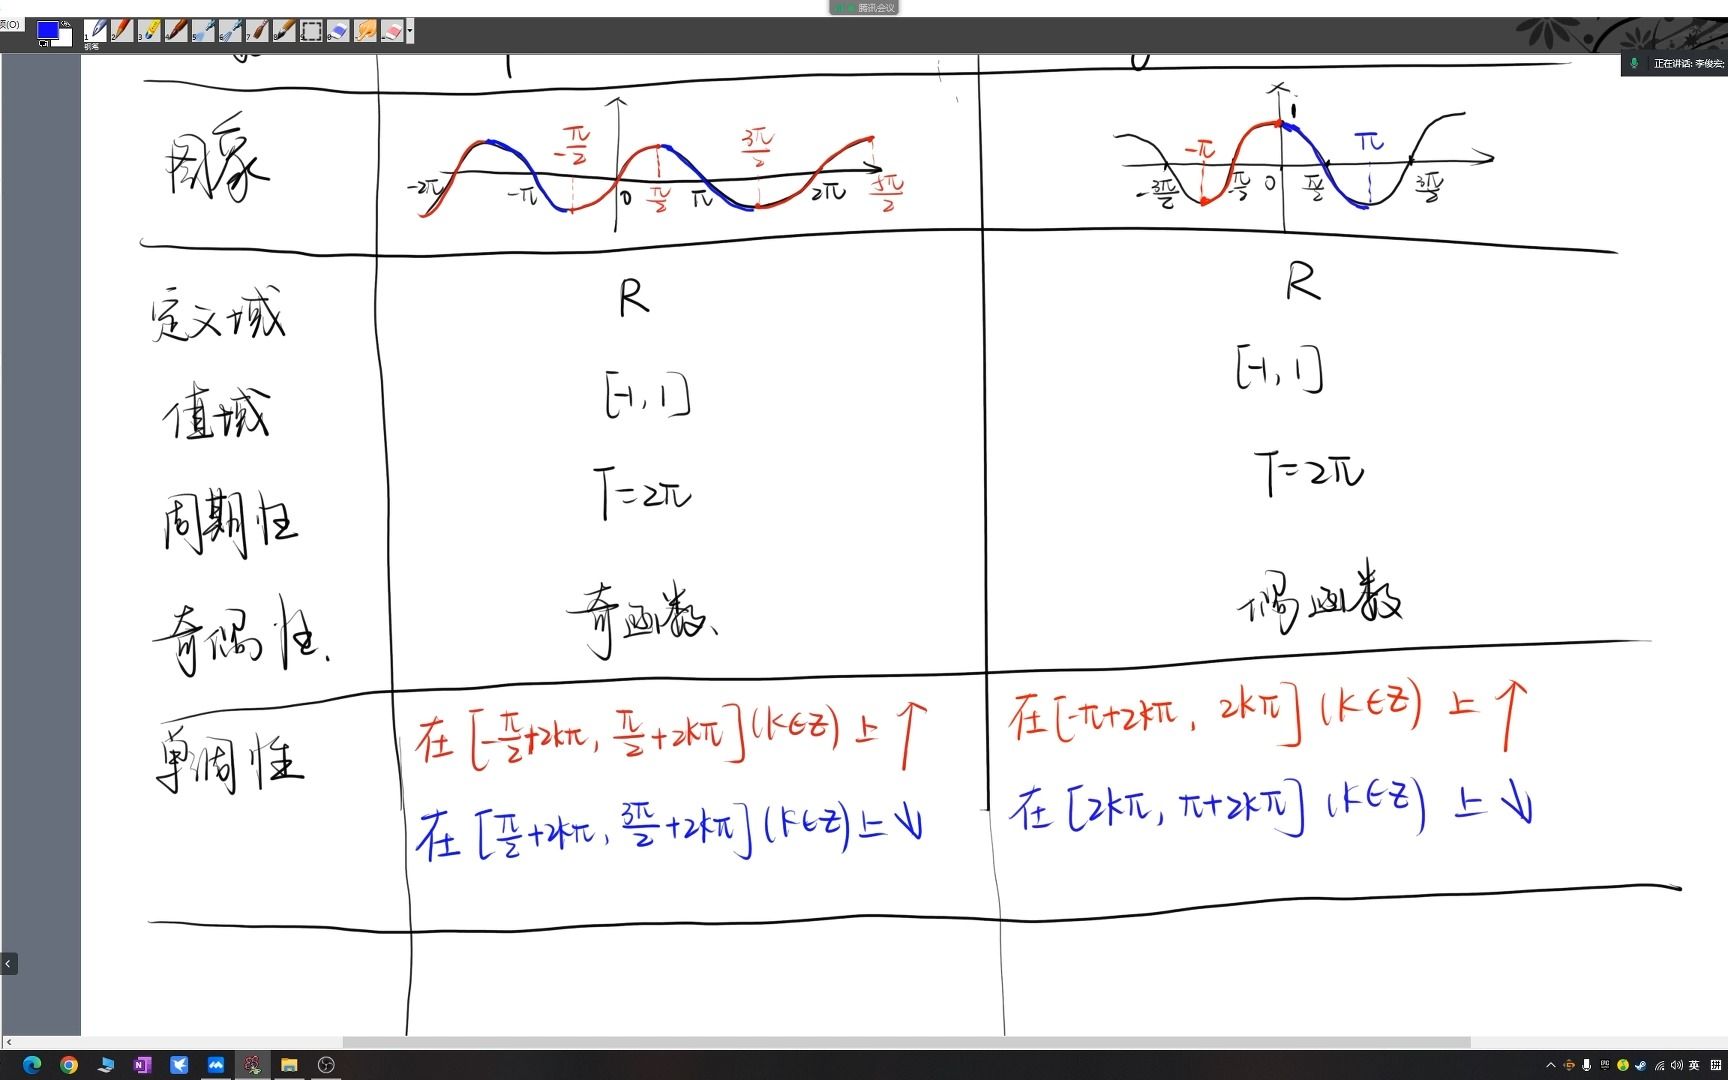 腾讯会议
正在讲话: 李俊宏;
钢笔
图象
-2π -π -π/2 0 π/2 π 3π/2 2π 5π/2
-3π/2 -π -π/2 0 1 π/2 π 3π/2
定义域 R R
值域 [-1, 1] [-1, 1]
周期性 T=2π T=2π
奇偶性. 奇函数、 偶函数
单调性 在[-π/2+2kπ, π/2+2kπ](k∈Z)上↑ 在[-π+2kπ, 2kπ](k∈Z)上↑
在[π/2+2kπ, 3π/2+2kπ](k∈Z)上↓ 在[2kπ, π+2kπ](k∈Z)上↓
英 拼